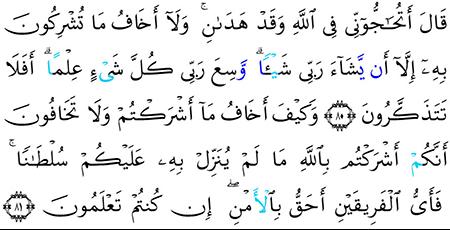 قَالَ أَتُحَٰٓجُّوٓنِّى فِى ٱللَّهِ وَقَدْ هَدَىٰنِ ۚ وَلَآ أَخَافُ مَا تُشْرِكُونَ
بِهِۦٓ إِلَّآ أَن يَشَآءَ رَبِّى شَيْـًٔا ۗ وَسِعَ رَبِّى كُلَّ شَىْءٍ عِلْمًا ۗ أَفَلَا
تَتَذَكَّرُونَ ﴿٨٥﴾ وَكَيْفَ أَخَافُ مَآ أَشْرَكْتُمْ وَلَا تَخَافُونَ
أَنَّكُمْ أَشْرَكْتُم بِٱللَّهِ مَا لَمْ يُنَزِّلْ بِهِۦ عَلَيْكُمْ سُلْطَٰنًا ۚ
فَأَىُّ ٱلْفَرِيقَيْنِ أَحَقُّ بِٱلْأَمْنِ ۖ إِن كُنتُمْ تَعْلَمُونَ ﴿٨١﴾